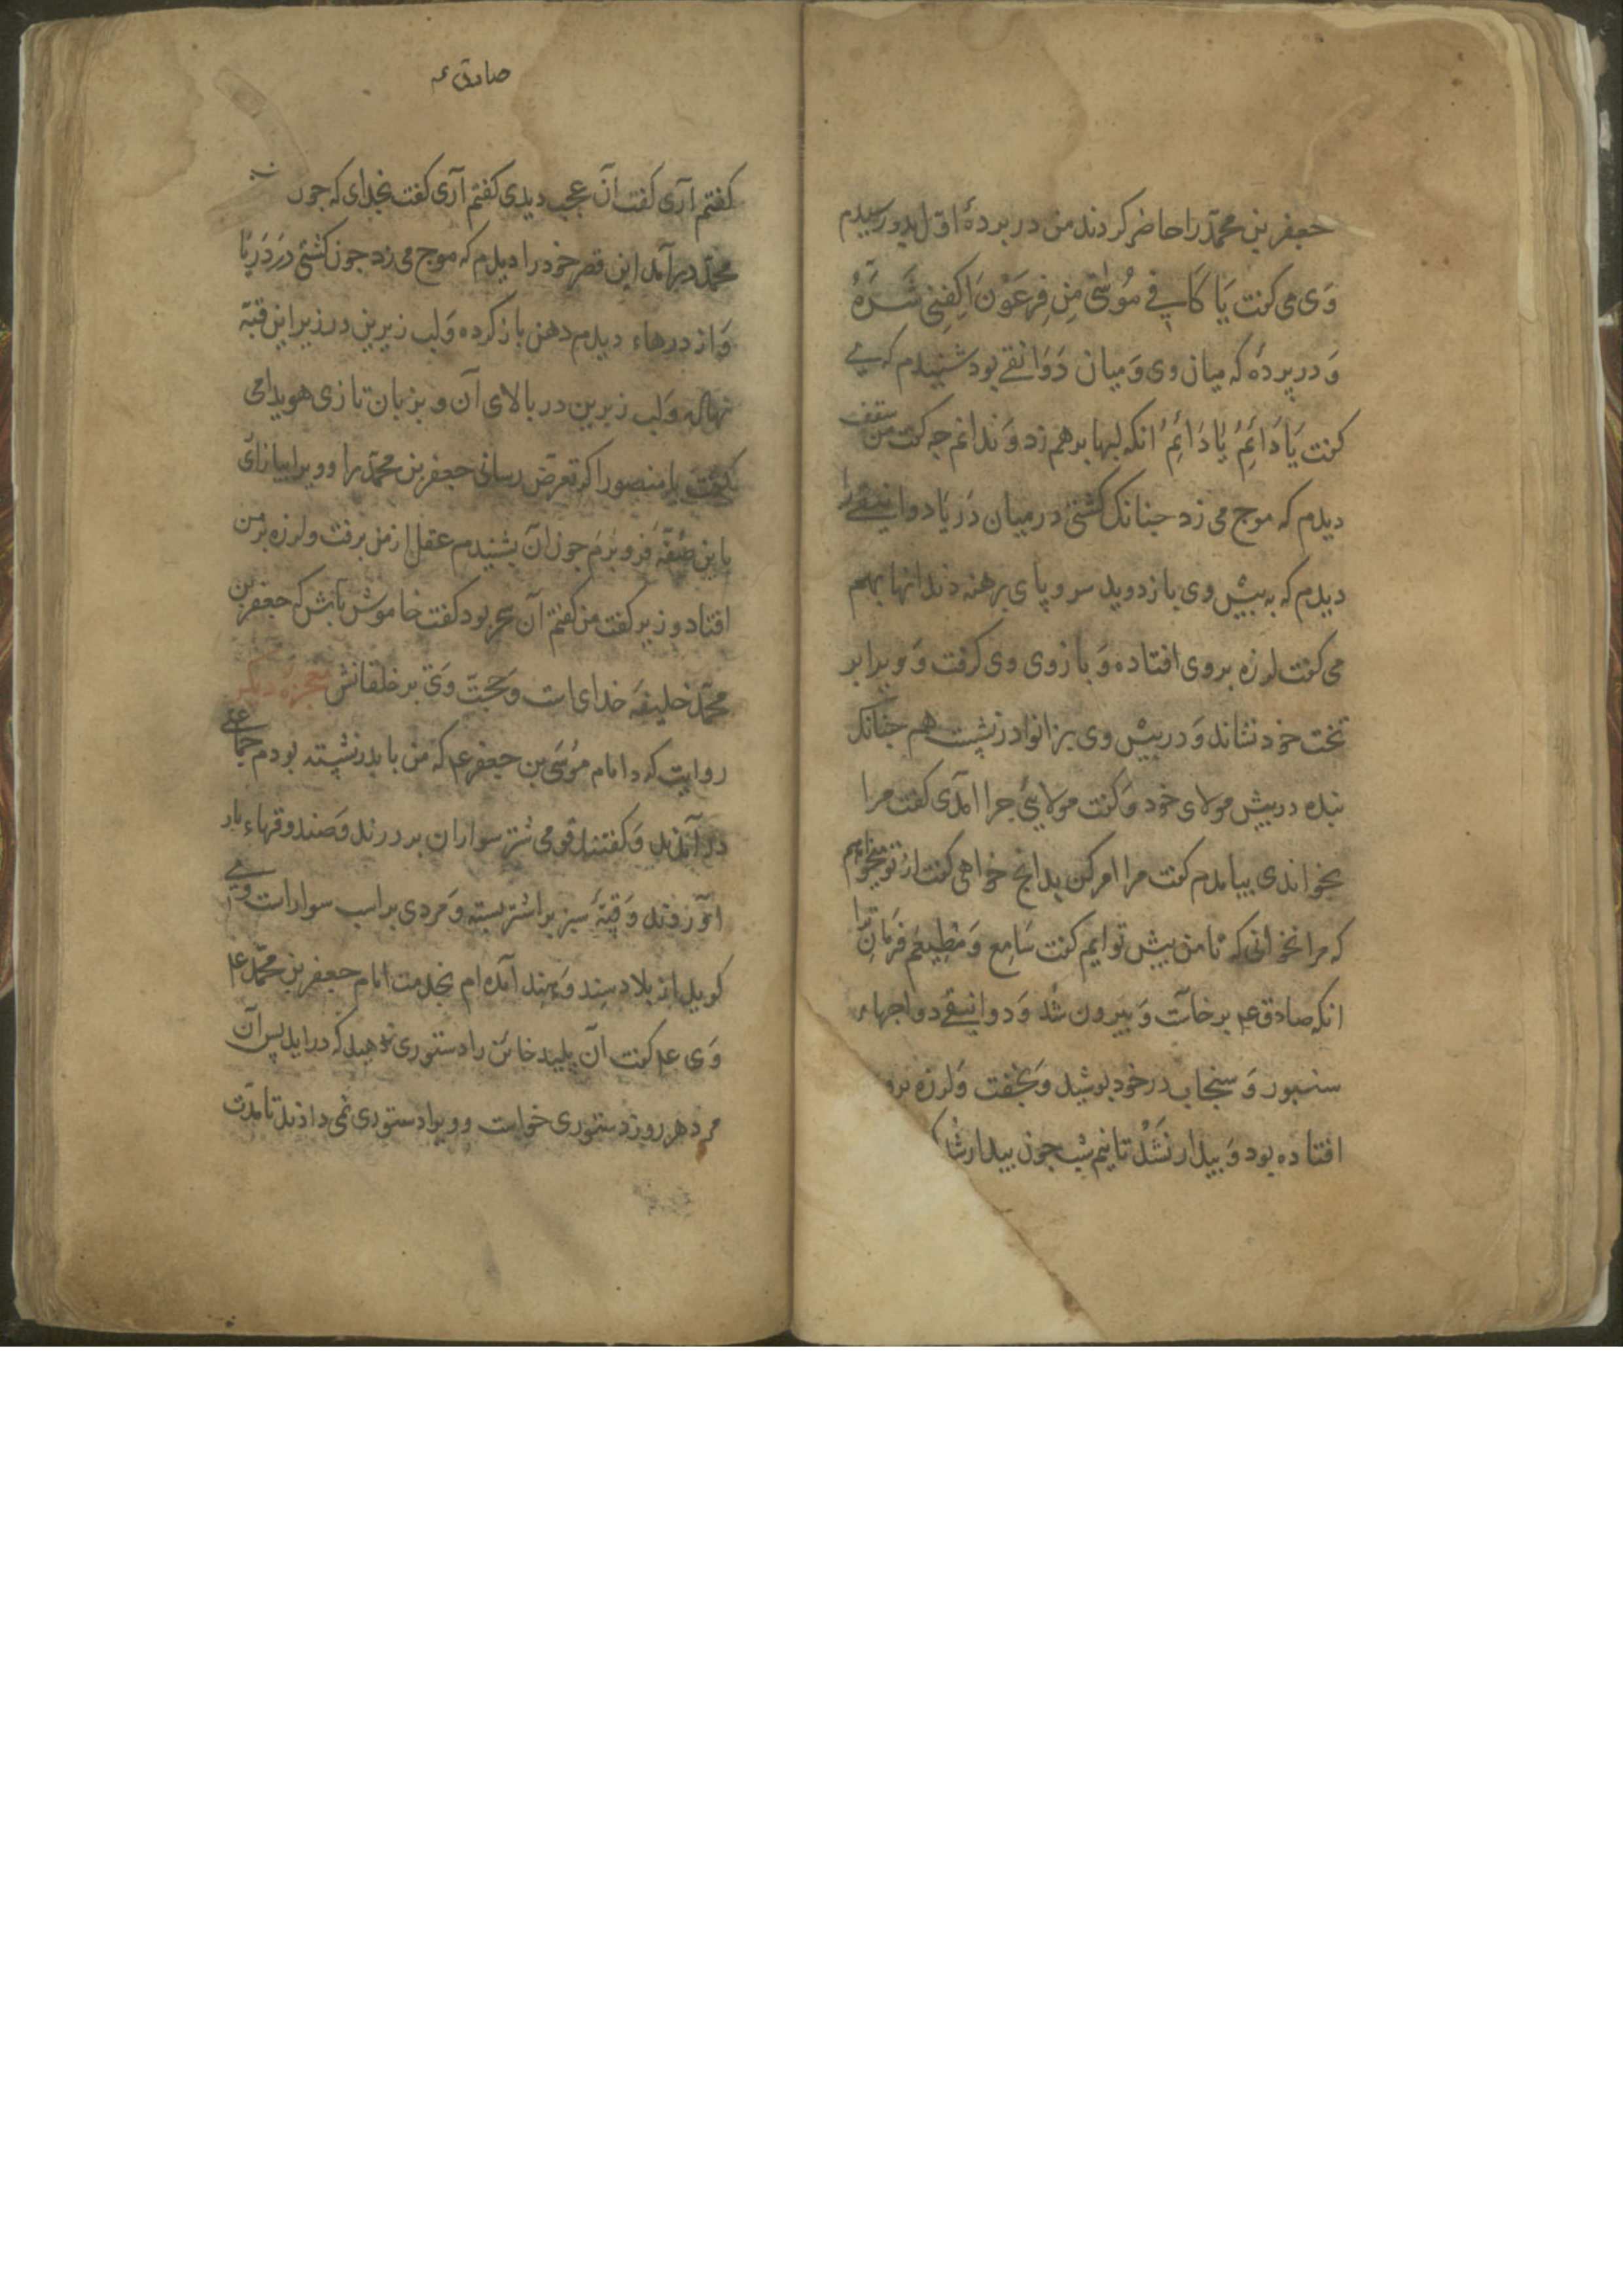 جعفر بن محمّد را حاضر کردند من در پردهٔ اوّل بدو رسیدم
وَی می کفت یَا کَافی مُوسٰی مِن فِرعَوْنَ اکِفِنی شَرَّهُ
وَ در پردهٔ که میان وی وَ میان دَوَانقے بود شنیدم که می
کفت یَا دَائِمُ یَا دَائِمُ انکه لبها برهم زد وَ ندانم جه کفت من سقف
دیدم که موج می زد جنانک کشتی در میان دَریَا دوانیقے را
دیدم که به پیش وی باز دوید سر و پای برهنه دندانها بهم
می کفت لرزه بروی افتاده وَ بازوی وی کرفت وَ ویرا بر
تخت خود نشاند وَ در پیش وی بزانو در نشست هم جنانک
بنده در پیش مولای خود وَ کفت مولایی جرا آمدی کفت مرا
بخواندی بیامدم کفت مرا امر کن بدانج خواهی کفت از تو میخواهم
که مرا نخوانی که تا من پیش تو ایم کفت سَامِع وَ مُطِیعَم فرمانِ ترا
انکه صادق عم برخاست وَ بیرون شُد وَ دوانیقے دواجهاء
سنبور وَ سنجاب در خود پوشید وَ بخفت وَ لرزه برو
افتاده بود وَ بیدار نَشُد تا نیم شب جون بیدار شد
صادق عم
کفتم آری کفت آن عجب دیدی کفتم آری کفت بخدای که جون
محمّد درآمد این قصر خود را دیدم که موج می زد جون کشتی در دریا
وَ اژدرهاء دیدم دهن باز کرده وَ لب زیرین در زیر این قبّه
نهاده وَ لب زبرین در بالای آن و بزبان تازی هویدا می
کفت یا منصور اکر تعرّض رسانی جعفر بن محمّد را و ویرا بیازاری
با این صُفّه فرو برم جون آن بشنیدم عقل از من برفت و لرزه بر من
افتاد وزیر کفت من کفتم آن سحر بود کفت خاموش باش که جعفر بن
محمّد خلیفهٔ خدای است وَ حجّت وَی بر خلقانش معجزهٔ دیکر
روایت که د امام مُوسَی بن جعفر عم که من با پدر نشسته بودم جماعتی
در آمدند وَ کفتند قومی شتر سواران بر درند وَ صندوقهاء بار
وَ قبّهٔ سبز بر اشتر بسته وَ مردی بر اسب سوار است وی
کوید از بلاد سِند وَ هِند آمده ام بخدمت امام جعفر بن محمّد عم
وَی عم کفت آن پلید خاین را دستوری مدهید که در اید پس آن
مرد هر روز دستوری خواست و ویرا دستوری نمی دادند تا مدّت